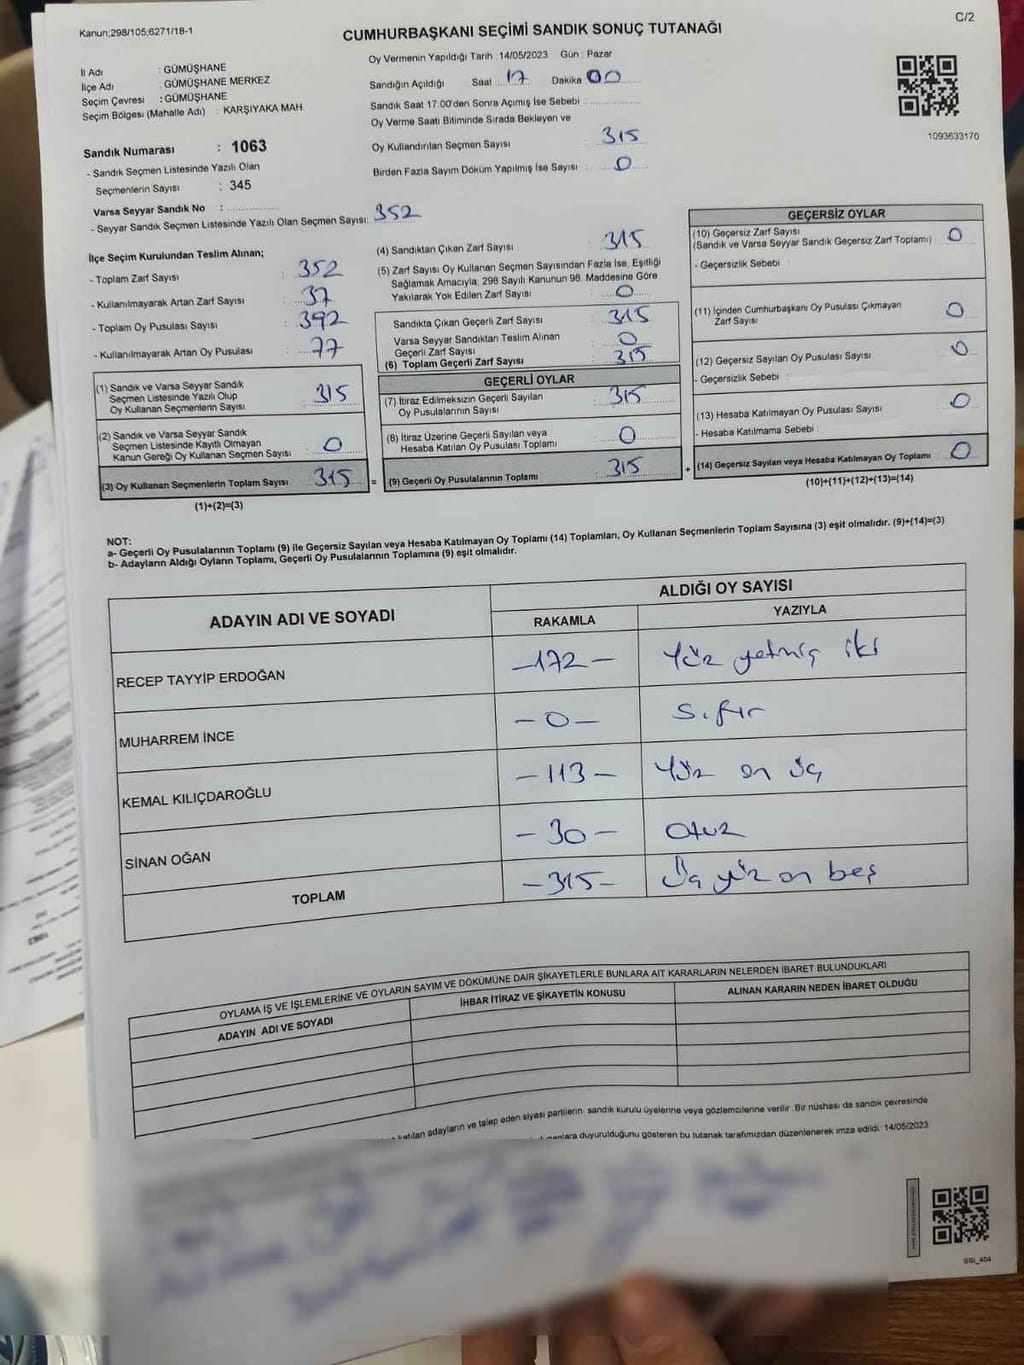 Kanun;298/105;6271/18-1
C/2
CUMHURBAŞKANI SEÇİMİ SANDIK SONUÇ TUTANAĞI
Oy Vermenin Yapıldığı Tarih : 14/05/2023 Gün : Pazar
İl Adı : GÜMÜŞHANE
İlçe Adı : GÜMÜŞHANE MERKEZ
Seçim Çevresi : GÜMÜŞHANE
Seçim Bölgesi (Mahalle Adı) : KARŞIYAKA MAH.
Sandık Numarası : 1063
- Sandık Seçmen Listesinde Yazılı Olan
Seçmenlerin Sayısı : 345
Varsa Seyyar Sandık No :
- Seyyar Sandık Seçmen Listesinde Yazılı Olan Seçmen Sayısı: 352
Sandığın Açıldığı Saat : 17 Dakika : 00
Sandık Saat 17:00'den Sonra Açımış İse Sebebi :
Oy Verme Saati Bitiminde Sırada Bekleyen ve
Oy Kullandırılan Seçmen Sayısı : 315
Birden Fazla Sayım Döküm Yapılmış İse Sayısı : 0
1093633170
İlçe Seçim Kurulundan Teslim Alınan;
- Toplam Zarf Sayısı : 352
- Kullanılmayarak Artan Zarf Sayısı : 37
- Toplam Oy Pusulası Sayısı : 392
- Kullanılmayarak Artan Oy Pusulası : 77
(1) Sandık ve Varsa Seyyar Sandık
Seçmen Listesinde Yazılı Olup
Oy Kullanan Seçmenlerin Sayısı : 315
(2) Sandık ve Varsa Seyyar Sandık
Seçmen Listesinde Kayıtlı Olmayan
Kanun Gereği Oy Kullanan Seçmen Sayısı : 0
(3) Oy Kullanan Seçmenlerin Toplam Sayısı : 315
(1)+(2)=(3)
(4) Sandıktan Çıkan Zarf Sayısı : 315
(5) Zarf Sayısı Oy Kullanan Seçmen Sayısından Fazla İse, Eşitliği
Sağlamak Amacıyla; 298 Sayılı Kanunun 98. Maddesine Göre
Yakılarak Yok Edilen Zarf Sayısı : 0
Sandıkta Çıkan Geçerli Zarf Sayısı : 315
Varsa Seyyar Sandıktan Teslim Alınan
Geçerli Zarf Sayısı : 0
(6) Toplam Geçerli Zarf Sayısı : 315
GEÇERLİ OYLAR
(7) İtiraz Edilmeksizin Geçerli Sayılan
Oy Pusulalarının Sayısı : 315
(8) İtiraz Üzerine Geçerli Sayılan veya
Hesaba Katılan Oy Pusulası Toplamı : 0
= (9) Geçerli Oy Pusulalarının Toplamı : 315
GEÇERSİZ OYLAR
(10) Geçersiz Zarf Sayısı
(Sandık ve Varsa Seyyar Sandık Geçersiz Zarf Toplamı) : 0
- Geçersizlik Sebebi :
(11) İçinden Cumhurbaşkanı Oy Pusulası Çıkmayan
Zarf Sayısı : 0
(12) Geçersiz Sayılan Oy Pusulası Sayısı : 0
- Geçersizlik Sebebi :
(13) Hesaba Katılmayan Oy Pusulası Sayısı : 0
- Hesaba Katılmama Sebebi :
+ (14) Geçersiz Sayılan veya Hesaba Katılmayan Oy Toplamı : 0
(10)+(11)+(12)+(13)=(14)
NOT:
a- Geçerli Oy Pusulalarının Toplamı (9) ile Geçersiz Sayılan veya Hesaba Katılmayan Oy Toplamı (14) Toplamları, Oy Kullanan Seçmenlerin Toplam Sayısına (3) eşit olmalıdır. (9)+(14)=(3)
b- Adayların Aldığı Oyların Toplamı, Geçerli Oy Pusulalarının Toplamına (9) eşit olmalıdır.
ADAYIN ADI VE SOYADI
ALDIĞI OY SAYISI
RAKAMLA YAZIYLA
RECEP TAYYİP ERDOĞAN -172- Yüz yetmiş iki
MUHARREM İNCE -0- Sıfır
KEMAL KILIÇDAROĞLU -113- Yüz on üç
SİNAN OĞAN -30- Otuz
TOPLAM -315- Üç yüz on beş
OYLAMA İŞ VE İŞLEMLERİNE VE OYLARIN SAYIM VE DÖKÜMÜNE DAİR ŞİKAYETLERLE BUNLARA AİT KARARLARIN NELERDEN İBARET BULUNDUKLARI
ADAYIN ADI VE SOYADI İHBAR İTİRAZ VE ŞİKAYETİN KONUSU ALINAN KARARIN NEDEN İBARET OLDUĞU
katılan adayların ve talep eden siyasi partilerin sandık kurulu üyelerine veya gözlemcilerine verilir. Bir nüshası da sandık çevresinde
duyurulduğunu gösteren bu tutanak tarafımızdan düzenlenerek imza edildi. 14/05/2023
SSI_404